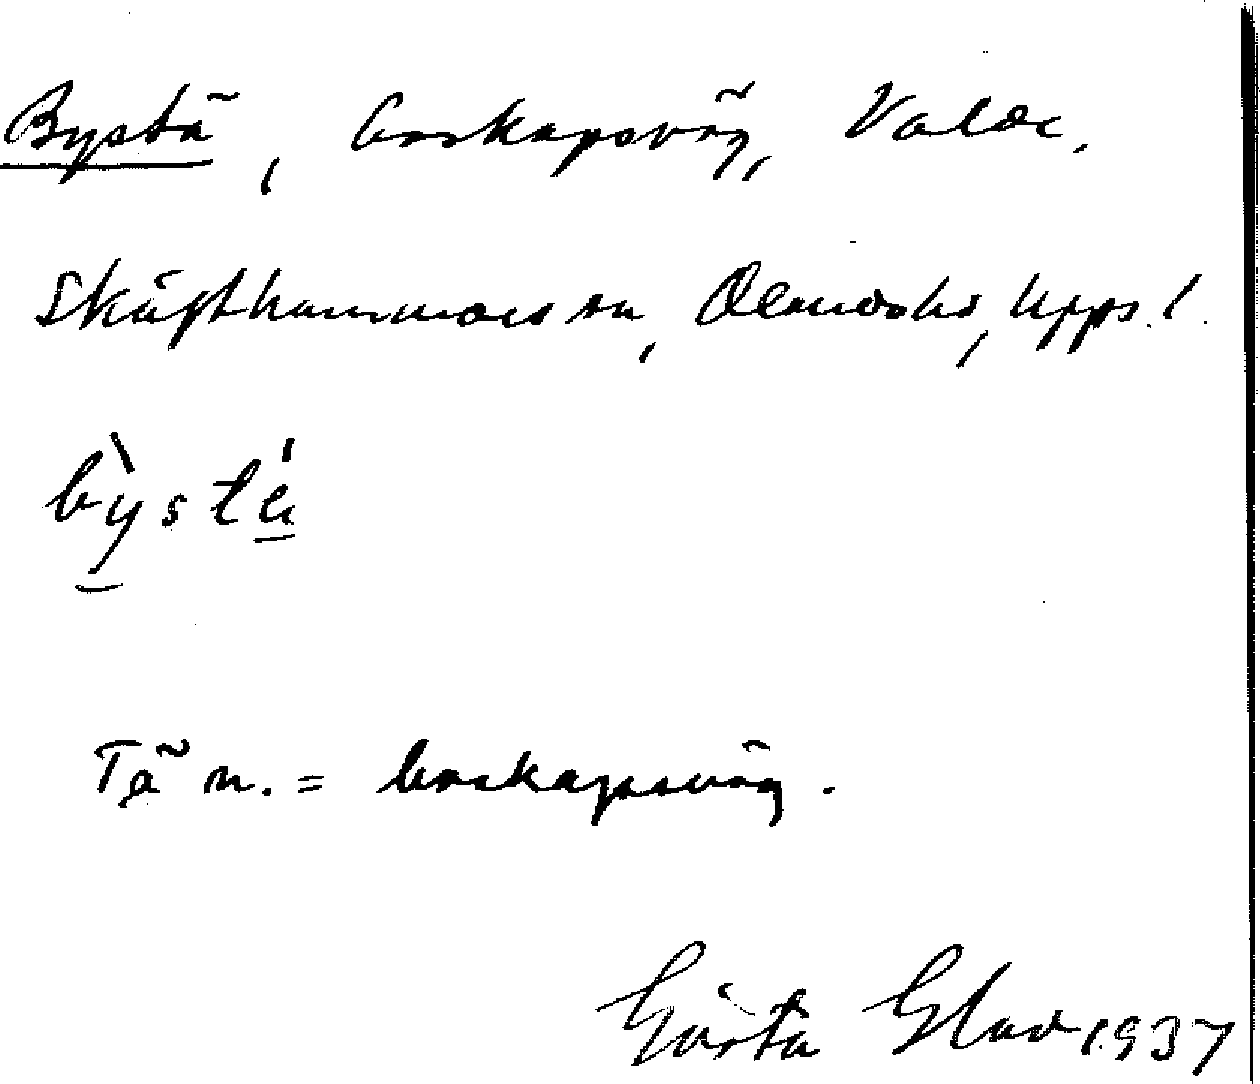 Bystä, boskapsväg,
Skäfthammars sn, Olands hd, Uppl.
bỳstä́
Tä n. = boskapsväg.
Gösta Glad 1937